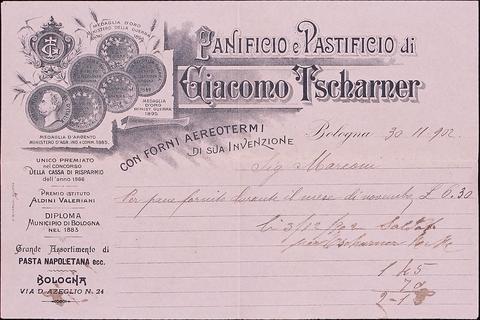 MEDAGLIA D'ORO
MINISTERO DELLA GUERRA
PANIFICIO e PASTIFICIO di
Giacomo Tscharner
MEDAGLIA
D'ORO
MINIST. GUERRA
1895
MEDAGLIA D'ARGENTO
MINISTERO D'AGR. IND. e COMM. 1885.
CON FORNI AEREOTERMI
DI SUA INVENZIONE
Bologna 30 11 902
UNICO PREMIATO
nel CONCORSO
DELLA CASSA DI RISPARMIO
dell'anno 1886
Sig Marconi
PREMIO ISTITUTO
ALDINI VALERIANI
Per pane fornito durante il mese di novembre £ 6.30
DIPLOMA
MUNICIPIO DI BOLOGNA
NEL 1883
li 3/12/902
Tscharner
Grande Assortimento di
PASTA NAPOLETANA ecc.
BOLOGNA
VIA D'AZEGLIO N. 24